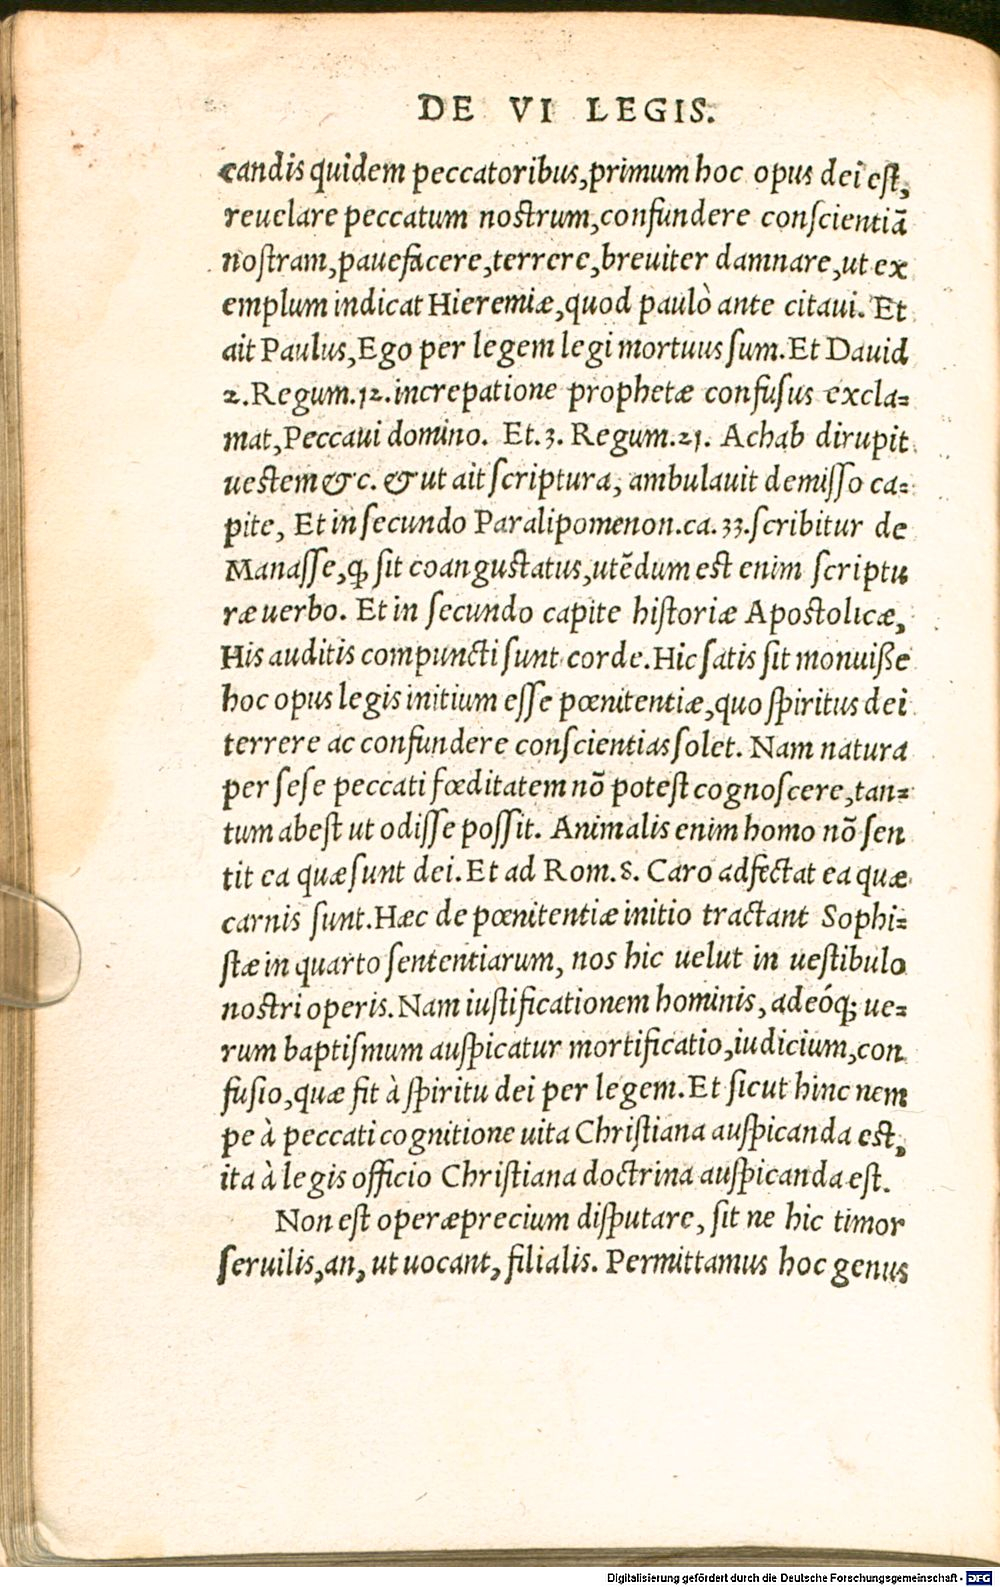 DE VI LEGIS.
candis quidem peccatoribus,primum hoc opus dei est,
reuelare peccatum nostrum,confundere conscientiã
nostram,pauefacere,terrere,breuiter damnare,ut ex
emplum indicat Hieremiæ,quod paulò ante citaui. Et
ait Paulus,Ego per legem legi mortuus sum.Et Dauid
2.Regum.12.increpatione prophetæ confusus excla-
mat,Peccaui domino. Et.3. Regum.21. Achab dirupit
uestem &c. & ut ait scriptura, ambulauit demisso ca-
pite, Et in secundo Paralipomenon.ca.33.scribitur de
Manasse,ꝙ sit coangustatus,utẽdum est enim scriptu
ræ uerbo. Et in secundo capite historiæ Apostolicæ,
His auditis compuncti sunt corde.Hic satis sit monuiße
hoc opus legis initium esse pœnitentiæ,quo spiritus dei
terrere ac confundere conscientias solet. Nam natura
per sese peccati fœditatem nõ potest cognoscere,tan-
tum abest ut odisse possit. Animalis enim homo nõ sen
tit ea quæ sunt dei.Et ad Rom.8. Caro adfectat ea quæ
carnis sunt.Hæc de pœnitentiæ initio tractant Sophi-
stæ in quarto sententiarum, nos hic uelut in uestibulo
nostri operis.Nam iustificationem hominis, adeóq; ue-
rum baptismum auspicatur mortificatio,iudicium,con
fusio,quæ fit à spiritu dei per legem.Et sicut hinc nem
pe à peccati cognitione uita Christiana auspicanda est,
ita à legis officio Christiana doctrina auspicanda est.
Non est operæprecium disputare, sit ne hic timor
seruilis,an, ut uocant, filialis. Permittamus hoc genus
Digitalisierung gefördert durch die Deutsche Forschungsgemeinschaft - DFG